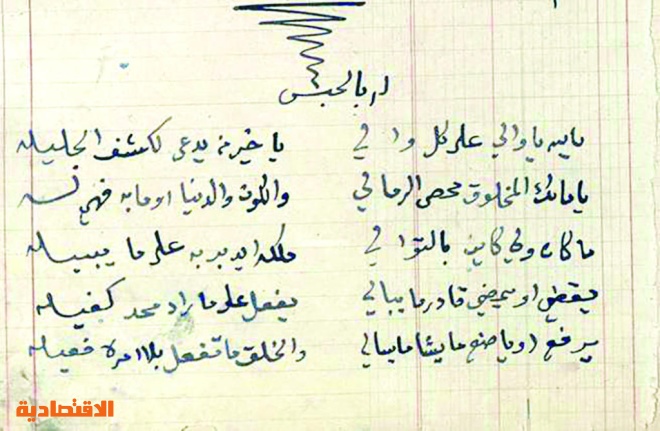 يا الله يا والي على كل والي يا خير من يدعى لكشف الجليله
يا مالك المخلوق محصي الرمالي والكون والدنيا وما به فهي له
ما كان ولي كاين بالتوالي ملكه ايدبر به على ما يبي له
يقضي او يمضي قادر ما يبالي يفعل على ما راد محد كفيله
يرفع او يا ضع ما يشا ما يبالي والخلق ما تفعل بلا امره فعيله
الاقتصادية